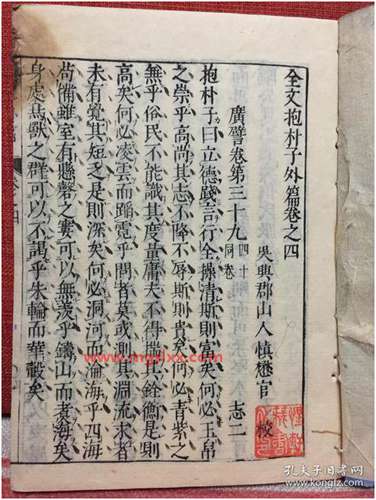 全文抱朴子外篇卷之四
吳興郡山人慎懋官 校
廣譬卷第三十九 四十同卷 志二
抱朴子曰立德踐言行全操清斯則富矣何必玉帛
之崇乎高尚其志不降不辱斯則貴矣何必青紫之
無乎俗民不能識其度量庸夫不得揣其銓衡是則
高矣何必凌雲而蹈電乎問者莫或測其淵流求者
未有覺其短乏是則深矣何必洞河而淪海乎四海
尚備雖室有懸磬之窶可以無羨乎鑄山而煮海矣
身處鳥獸之群可以不渴乎朱輪而華轂矣
孔夫子旧书网